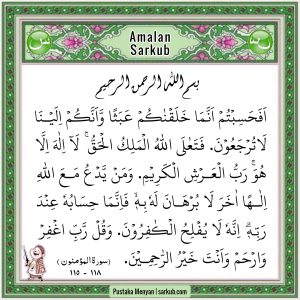 Amalan
Sarkub
بسم الله الرحمن الرحيم
اَفَحَسِبْتُمْ اَنَّمَا خَلَقْنٰكُمْ عَبَثًا وَّاَنَّكُمْ اِلَيْنَا
لَا تُرْجَعُوْنَ. فَتَعٰلَى اللهُ الْمَلِكُ الْحَقُّ ۚ لَآ اِلٰهَ اِلَّا
هُوَ ۚ رَبُّ الْعَرْشِ الْكَرِيْمِ. وَمَنْ يَّدْعُ مَعَ اللهِ
اِلٰـهًا اٰخَرَ لَا بُرْهَانَ لَهٗ بِهٖ ۙ فَاِنَّمَا حِسَابُهٗ عِنْدَ
رَبِّهٖ ۗ اِنَّهٗ لَا يُفْلِحُ الْكٰفِرُوْنَ. وَقُلْ رَّبِّ اغْفِرْ
وَارْحَمْ وَاَنْتَ خَيْرُ الرّٰحِمِيْنَ. (سورة المؤمنون)
١١٨ - ١١٥
Pustaka Menyan | sarkub.com